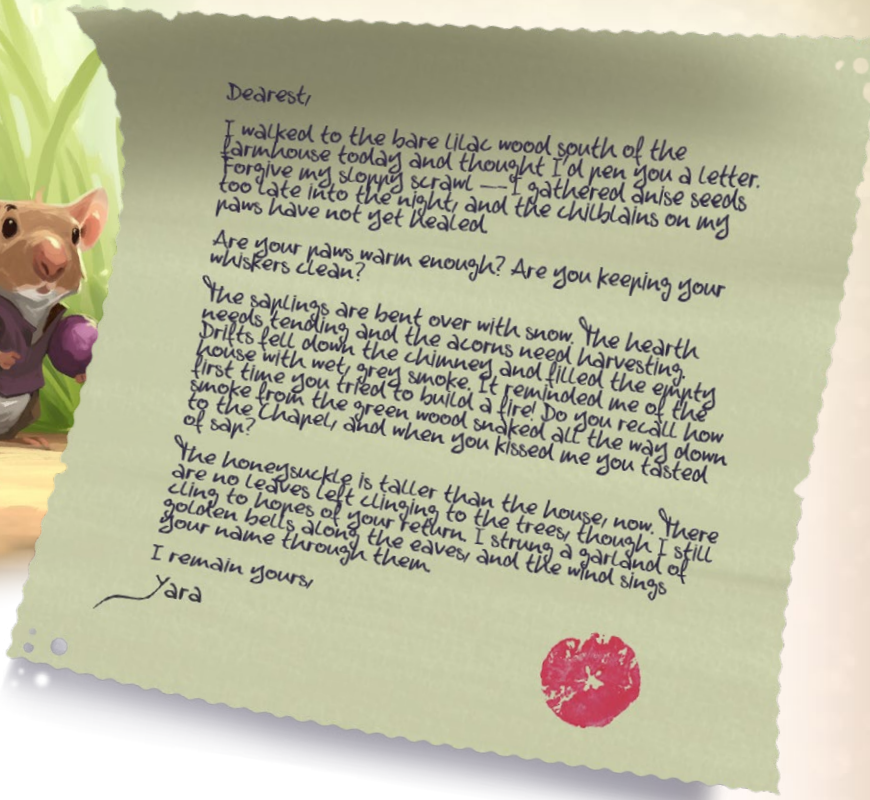 Dearest,
I walked to the bare lilac wood south of the
farmhouse today and thought I'd pen you a letter.
Forgive my sloppy scrawl — I gathered anise seeds
too late into the night, and the chilblains on my
paws have not yet healed.
Are your paws warm enough? Are you keeping your
whiskers clean?
The saplings are bent over with snow. The hearth
needs tending and the acorns need harvesting.
Drifts fell down the chimney and filled the empty
house with wet, grey smoke. It reminded me of the
first time you tried to build a fire! Do you recall how
smoke from the green wood snaked all the way down
to the Chapel, and when you kissed me you tasted
of sap?
The honeysuckle is taller than the house, now. There
are no leaves left clinging to the trees, though I still
cling to hopes of your return. I strung a garland of
golden bells along the eaves, and the wind sings
your name through them.
I remain yours,
Yara